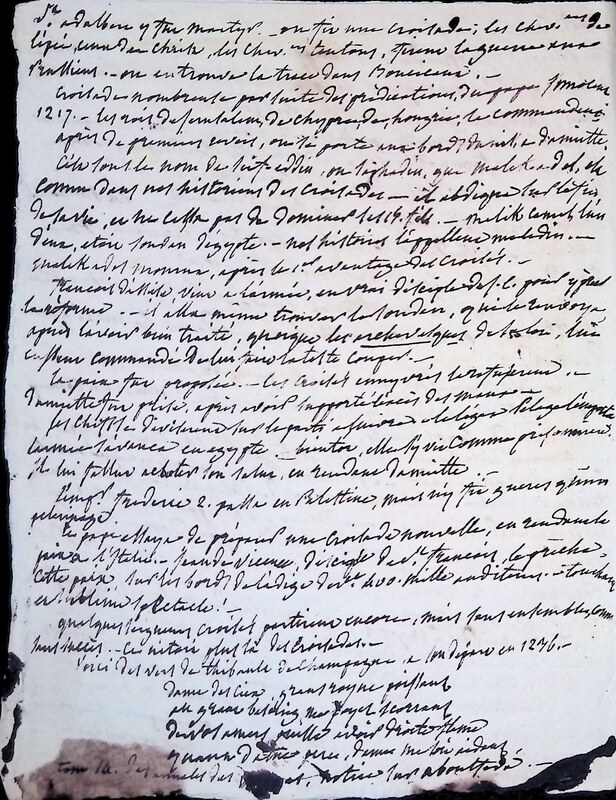 St. adalbert y fut martyr. - on fit une croisade; les chev.ers de
l'épée, ceux de christ, les chev.ers teutons, firent la guerre aux
prussiens. - on en trouve la trace dans
croisade nombreuse par suite des prédications, du pape
1217. - les rois de jerusalem, de chypre, de hongrie, le commandent.
après de premiers revers, on se porte aux bords du nil a damiette.
C'est sous le nom de seifeddin, ou saphadin, que malek adel, est
connu dans nos historiens des croisades - il abdiqua sur la fin
de sa vie, et ne cessa pas de dominer ses 19. fils. - melik camel, l'un
d'eux, etoit soudan d'egypte. - nos histoires l'appellent meledin. -
malek adel mourut, après le 1.er avantage des croisés. -
françois d'assise, vint a l'armée, en vrai disciple de J. C. pour y prêcher
la réforme. - il alla meme trouver le soudan, qui le renvoya
après l'avoir bien traité, quoique les archevesques de sa loi, lui
eussent commandé de lui faire la teste couper. -
la paix fut proposée. - les croisés enivrés la refuserent. -
damiette fut prise, après avoir supporté l'excès des maux. -
les chefs se diviserent sur le parti a suivre - le legat Pelage l'emporta
l'armée s'avança en egypte - bientot, elle s'y vit comme prisonniere.
il lui fallut acheter son salut, en rendant damiette. -
l'emp.r frederic 2. passa en Palestine, mais n'y fit gueres qu'un
pelerinage.
Le pape essaya de préparer une croisade nouvelle, en rendant la
paix a l'Italie. - Jean de vicence, disciple de St. françois, la prêcha
cette paix, sur les bords de l'adige devant 400. mille auditeurs. - touchant
et sublime spectacle! -
quelques seigneurs croisés partirent encore, mais sans ensemble, comme
sans succès. - ce n'étoit plus là des croisades. -
voici des vers de thibault de champagne, a son départ en 1236. -
dame des cieux, grans royne puissant
au grant besoing me soyez secorrant
de vos amer puisse avoir droite flame
quant dame pers, dame me soit aidant
tom 14. des annales des notice sur aboulfeda. -